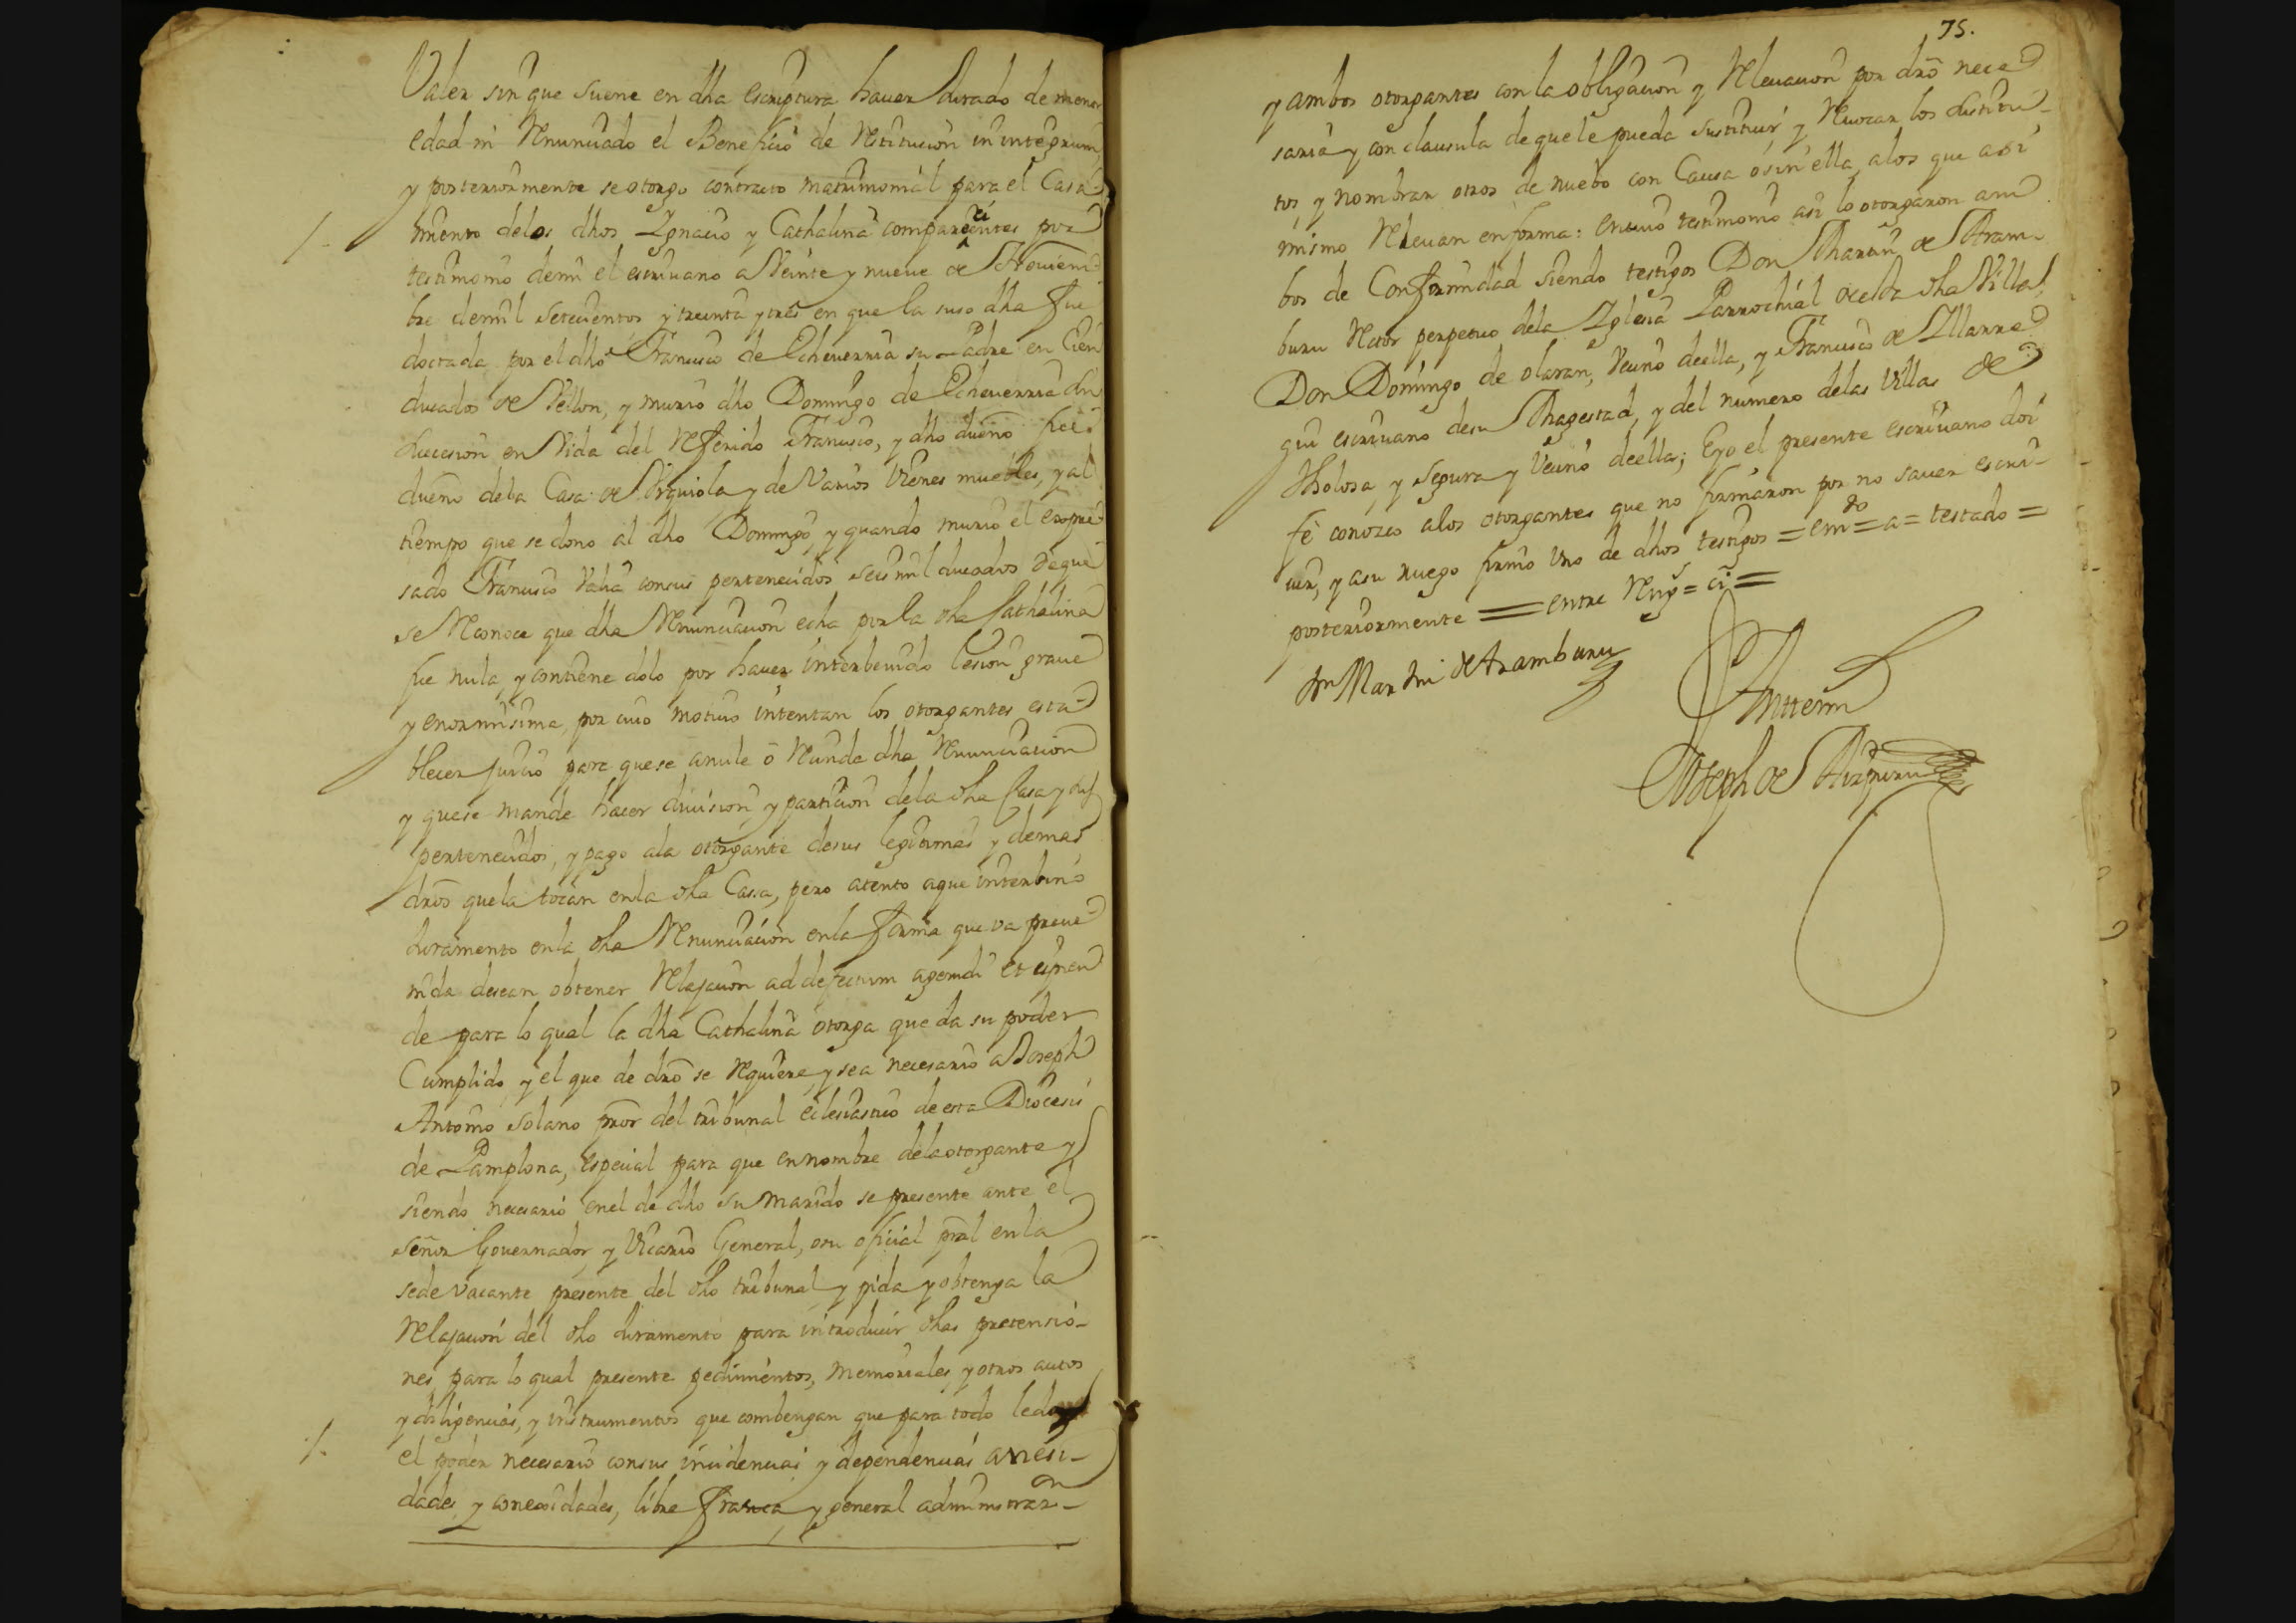 Valer sin que suene en dha escriptura hauer Jurado de menor
edad ni Renunciado el Beneficio de Restitucion in integrum,
y posteriormente se otorgo contrato matrimonial para el Casa-
miento delos dhos Ignacio y Cathalina comparecientes por
testimonio demi el escriuano a Veinte y nueue de Nouiem-
bre demil setecientos y treinta y tres en que la suso dha fue
doctada por el dho Francisco de Echeuerria su Padre en Cien
ducados de Vellon, y murio dho Domingo de Echeuerria sin
sucesion en Vida del Referido Francisco, y dho dueño fue
dueño dela Casa de Vrquiola y de Varios Vienes muebles, y al
tiempo que se dono al dho Domingo, y quando murio el expre-
sado Francisco Valia consus pertenecidos seis mil ducados de que
se Reconoce que dha Renunciacion echa por la dha Cathalina
fue nula, y contiene dolo por hauer interbenido lesion graue
y enormisima, por cuio motiuo intentan los otorgantes esta-
blecer juicio para quese anule ó Recinda dha Renunciacion
y quese mande hacer diuision, y particion dela dha Casa y sus
pertenecidos, y pago ala otorgante desus legitimas y demas
dros quela tocan enla dha Cassa, pero atento aque interbino
Juramento enla dha Renunciacion enla forma que va preue-
nida desean obtener Relajacion ad defectum agendi et cipien
de para lo qual la dha Cathalina otorga que da su poder
Cumplido, y el que de dro se Requiere, y sea necesario a Joseph
Antonio Solano pror del tribunal eclesiastico de esta Diocesis
de Pamplona, especial para que ennombre dela otorgante y
siendo necesario enel de dho su marido se presente ante el
señor Gouernador, y Vicario General, osu oficial pral enla
sede vacante presente del dho tribunal y pida y obtenga la
Relajacion del dho Juramento para introducir dhas pretensio-
nes para lo qual presente pedimientos, memoriales, y otros autos
y diligencias, y instrumentos que combengan que para todo le da
el poder necesario consus incidencias y dependencias anesi-
dades y conexidades, libre franca, y general administrazn
75.
y ambos otorgantes con la obligacion y Releuacion por dro nece-
saria y con clausula de quele pueda sustituir, y Reuocar los sustitu-
tos, y nombrar otros de nuebo con Causa o sin ella, alos que asi
mismo Releuan en forma: en cuio testimonio asi lo otorgaron am-
bos de Conformidad siendo testigos Don Martin de Aram-
buru Retor perpetuo dela Iglesia Parrochial de esta dha Villa,
Don Domingo de olaran, Vecino de ella, y Francisco de Illarre-
gui escriuano desu Magestad, y del numero delas Villas de
Tholosa, y Segura y Vecino de ella; Eyo el presente escriuano doi
fe conozco alos otorgantes que no firmaron por no sauer escri-
uir, y asu ruego firmo Vno de dhos testigos = emdo = a = testado =
posteriormente = entre Rengs = ci =
Dn Martin de Aramburu
Antemi
Joseph de Aizpuru